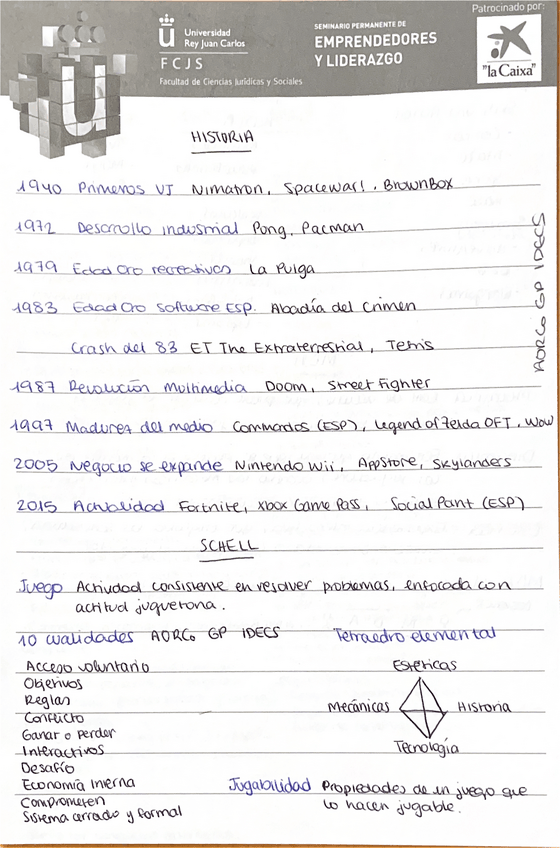 Patrocinado por:
Universidad
Rey Juan Carlos
FCJS
Facultad de Ciencias Jurídicas y Sociales
SEMINARIO PERMANENTE DE
EMPRENDEDORES
Y LIDERAZGO
"la Caixa"
HISTORIA
1940 Primeros VJ Nimatron, Spacewar!, BrownBox
1972 Desarrollo industrial Pong, Pacman
1979 Edad Oro recreativos La Pulga
1983 Edad Oro software ESP. Abadía del Crimen
Crash del 83 ET The Extraterrestrial, Tetris
1987 Revolución multimedia Doom, Street Fighter
1997 Madurez del medio Commandos (ESP), Legend of Zelda OFT, WoW
2005 Negocio se expande Nintendo Wii, AppStore, Skylanders
2015 Actualidad Fortnite, Xbox Game Pass, Social Point (ESP)
AORCG GP IDECS
SCHELL
Juego Actividad consistente en resolver problemas, enfocada con
actitud juguetona.
10 cualidades AORCG GP IDECS
Acceso voluntario
Objetivos
Reglas
Conflicto
Ganar o perder
Interactivos
Desafío
Economía interna
Comprometen
Sistema cerrado y formal
Tetraedro elemental
Estéticas
Mecánicas Historia
Tecnología
Jugabilidad Propiedades de un juego que
lo hacen jugable.